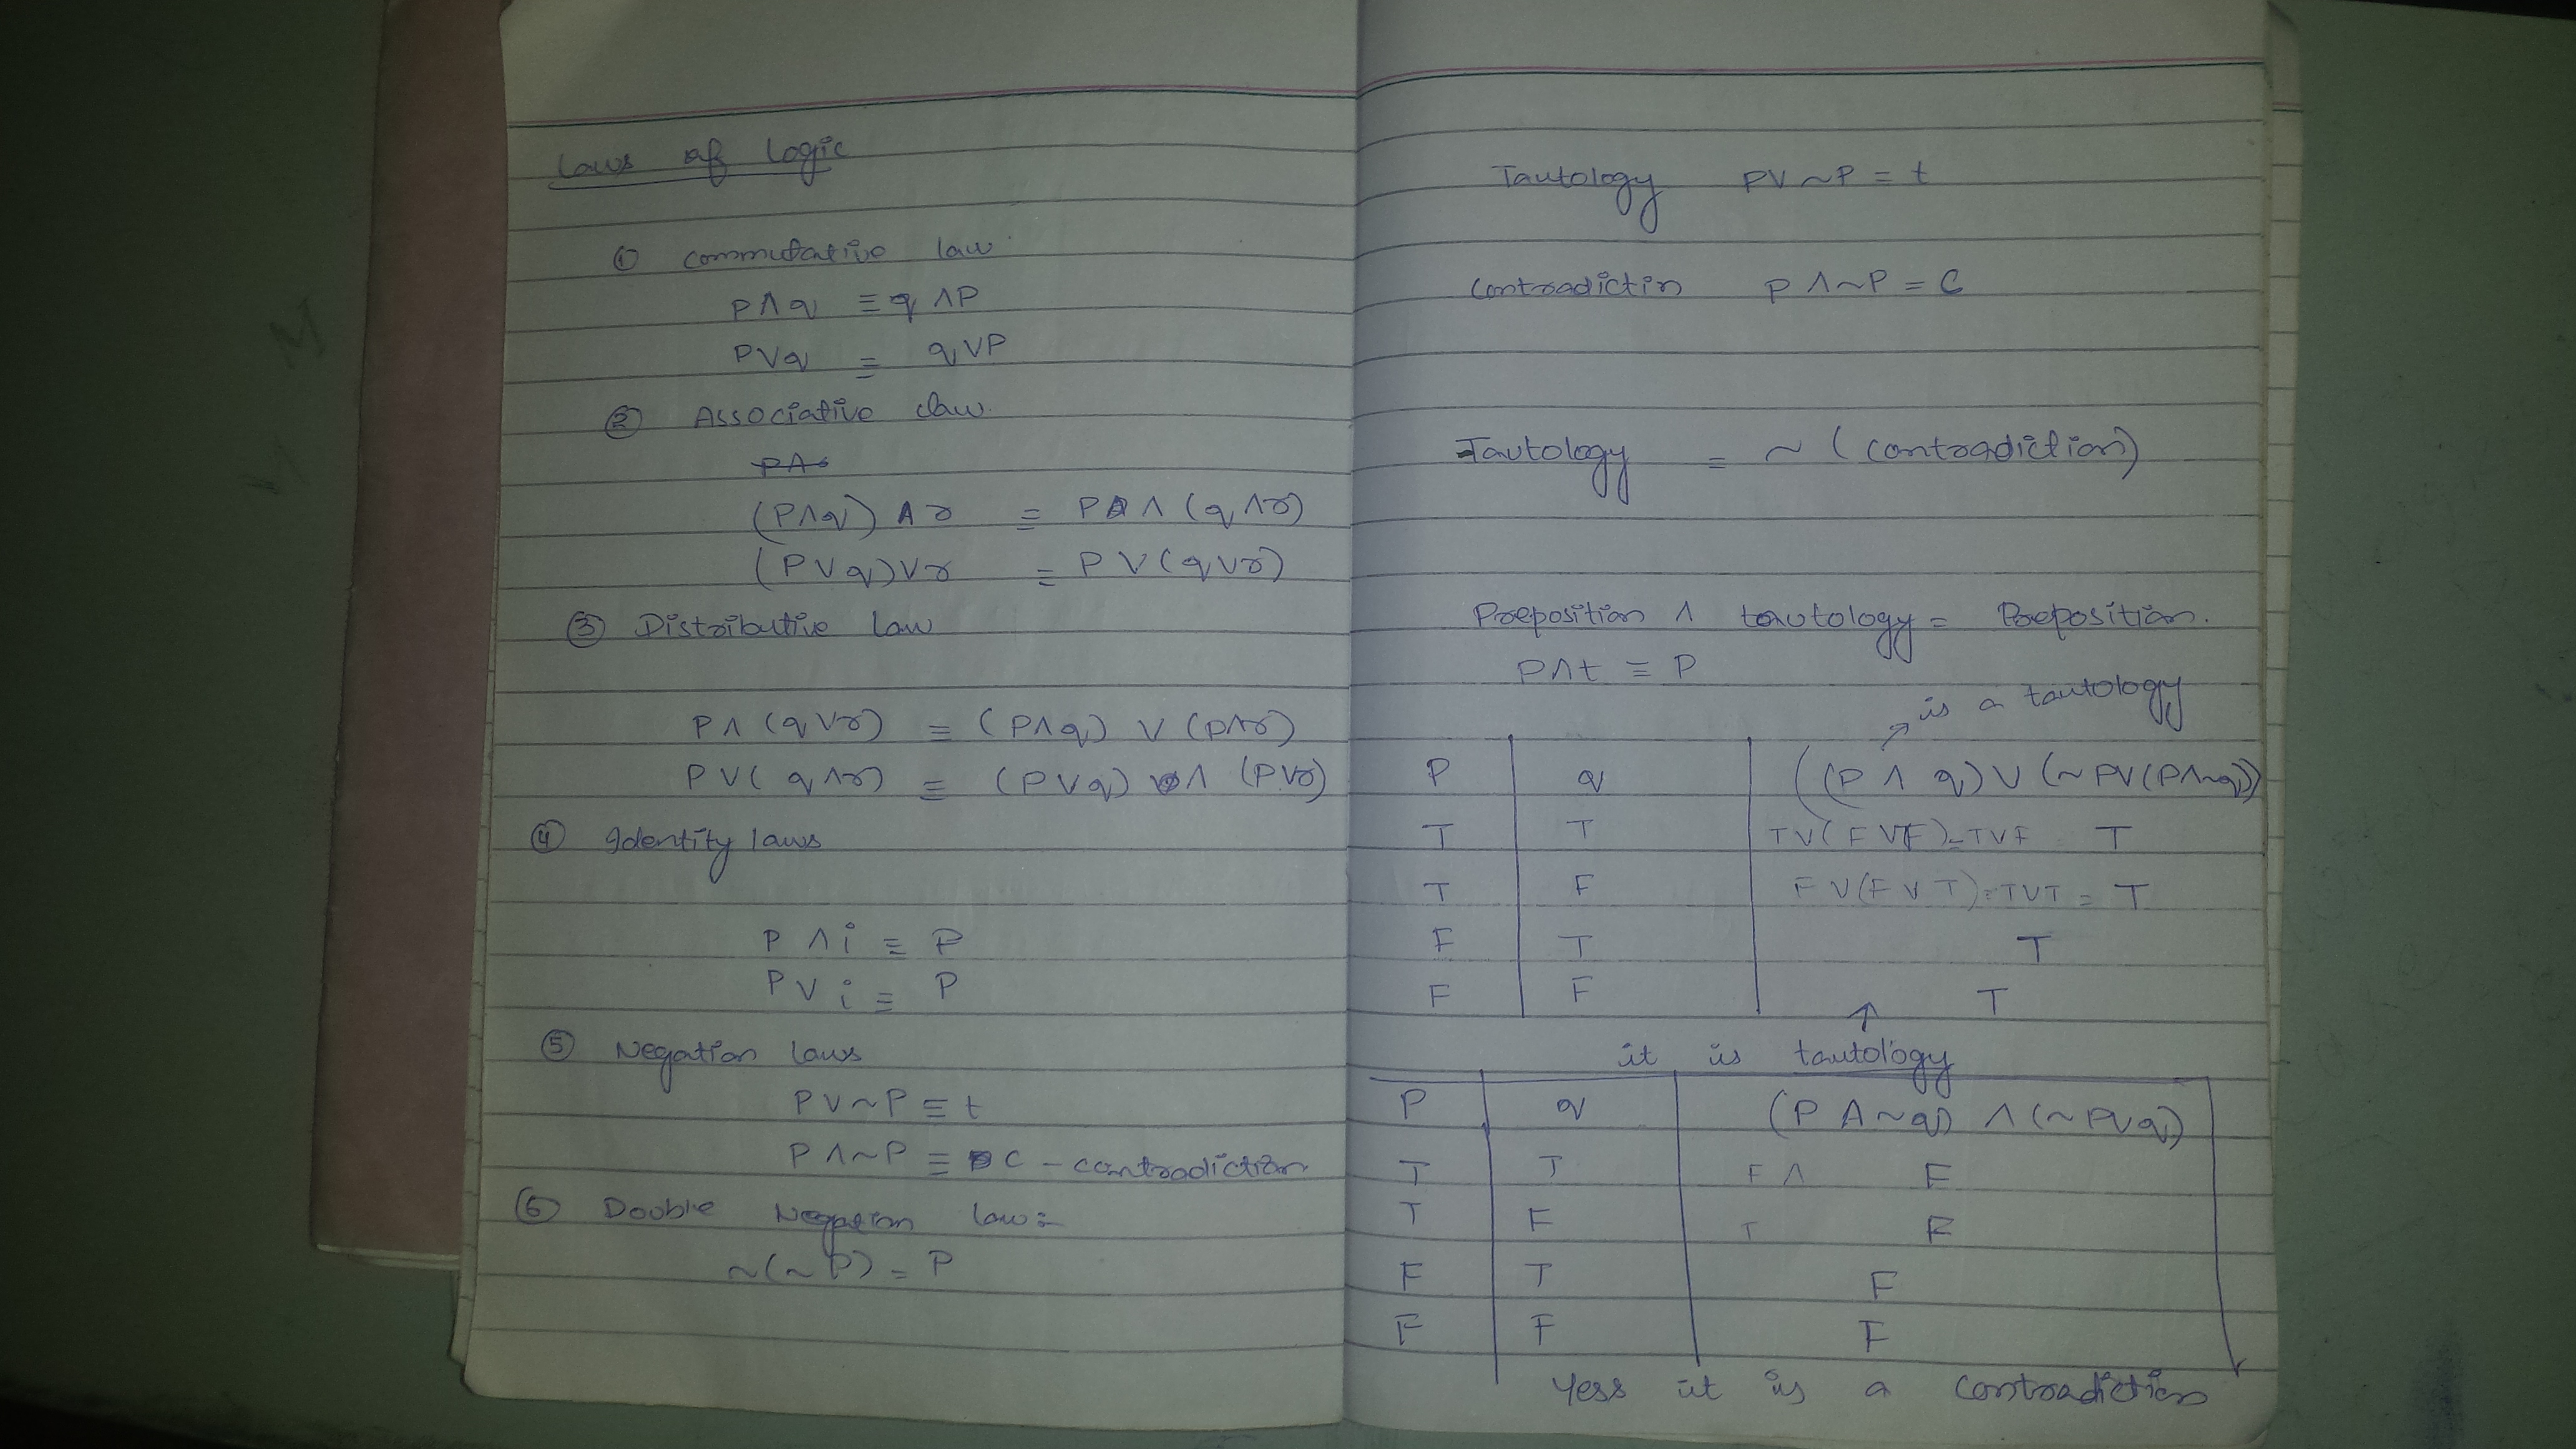 Laws of Logic
① Commutative law
P∧q ≡ q∧P
P∨q ≡ q∨P
② Associative law
(P∧q)∧r ≡ P∧(q∧r)
(P∨q)∨r ≡ P∨(q∨r)
③ Distributive law
P∧(q∨r) ≡ (P∧q)∨(p∧r)
P∨(q∧r) ≡ (P∨q)∧(P∨r)
④ Identity laws
P∧i ≡ P
P∨i ≡ P
⑤ Negation laws
P∨~P ≡ t
P∧~P ≡ C - contradiction
⑥ Double Negation law:-
~(~P) = P
Tautology P∨~P = t
Contradictin P∧~P = C
Tautology = ~(contradiction)
Preposition ∧ tautology = Preposition.
P∧t ≡ P
is a tautology
P q ((P∧q)∨(~P∨(P∧~q))
T T T∨(F∨F)=T∨F T
T F F∨(F∨T)=T∨T = T
F T T
F F T
it is tautology
P q (P∧~q)∧(~P∨q)
T T F∧ F
T F T F
F T F
F F F
Yess it is a contradiction